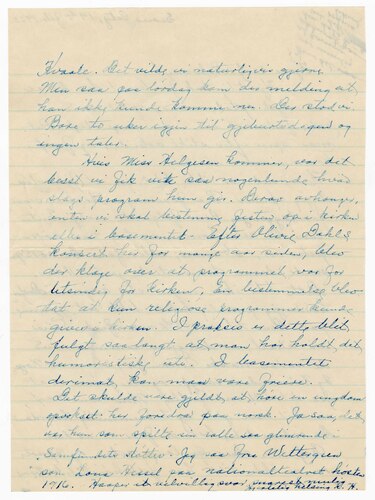 Kvaale. Det vilde vi naturligvis gjerne
Men saa paa lordag kom der melding at
han ikke kunde komme nu. Der stod vi.
Bare to uker igjen til gjeburtsdagen og
ingen taler.
Hvis Miss Helgesen kommer, var det
best vi fik vite saa nogenlunde hva
slags program hun gir. Derav avhenger,
enten vi skal bestemme festen op i kirken
eller i basementet. Efter Olive Dahls
konsert her for mange aar siden, blev
der klage over at programmet var for
utsindig for kirken, en bestemmelse blev
tat at kun religiose programmer kunde
gives i kirken. I praksis er dette blit
fulgt saa langt at man har holdt det
humoristiske ute. I basementet
derimot, kan man være friere.
Det skulde være gjeldt, at hore en ungdom
opvokset her foredra paa norsk. Ja saa, det
var hun som spilte sin rolle saa glimrende.
Samfundets Stotter. Jeg saa Tore Wettergren
som Lona Hessel paa nationalteatret hosten
1916. Haaper et velvillig svar snarest mulig
Hilsen R. H.